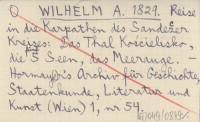 Q WILHELM A. 1821. Reise
in die Karpathen des Sandezer
Kreises: Das Thal Kościelisko,
die 5 Seen, das Meerauge. -
Hormayr's Archiv für Geschichte,
Staatenkunde, Literatur und
Kunst (Wien) 1, nr 54.